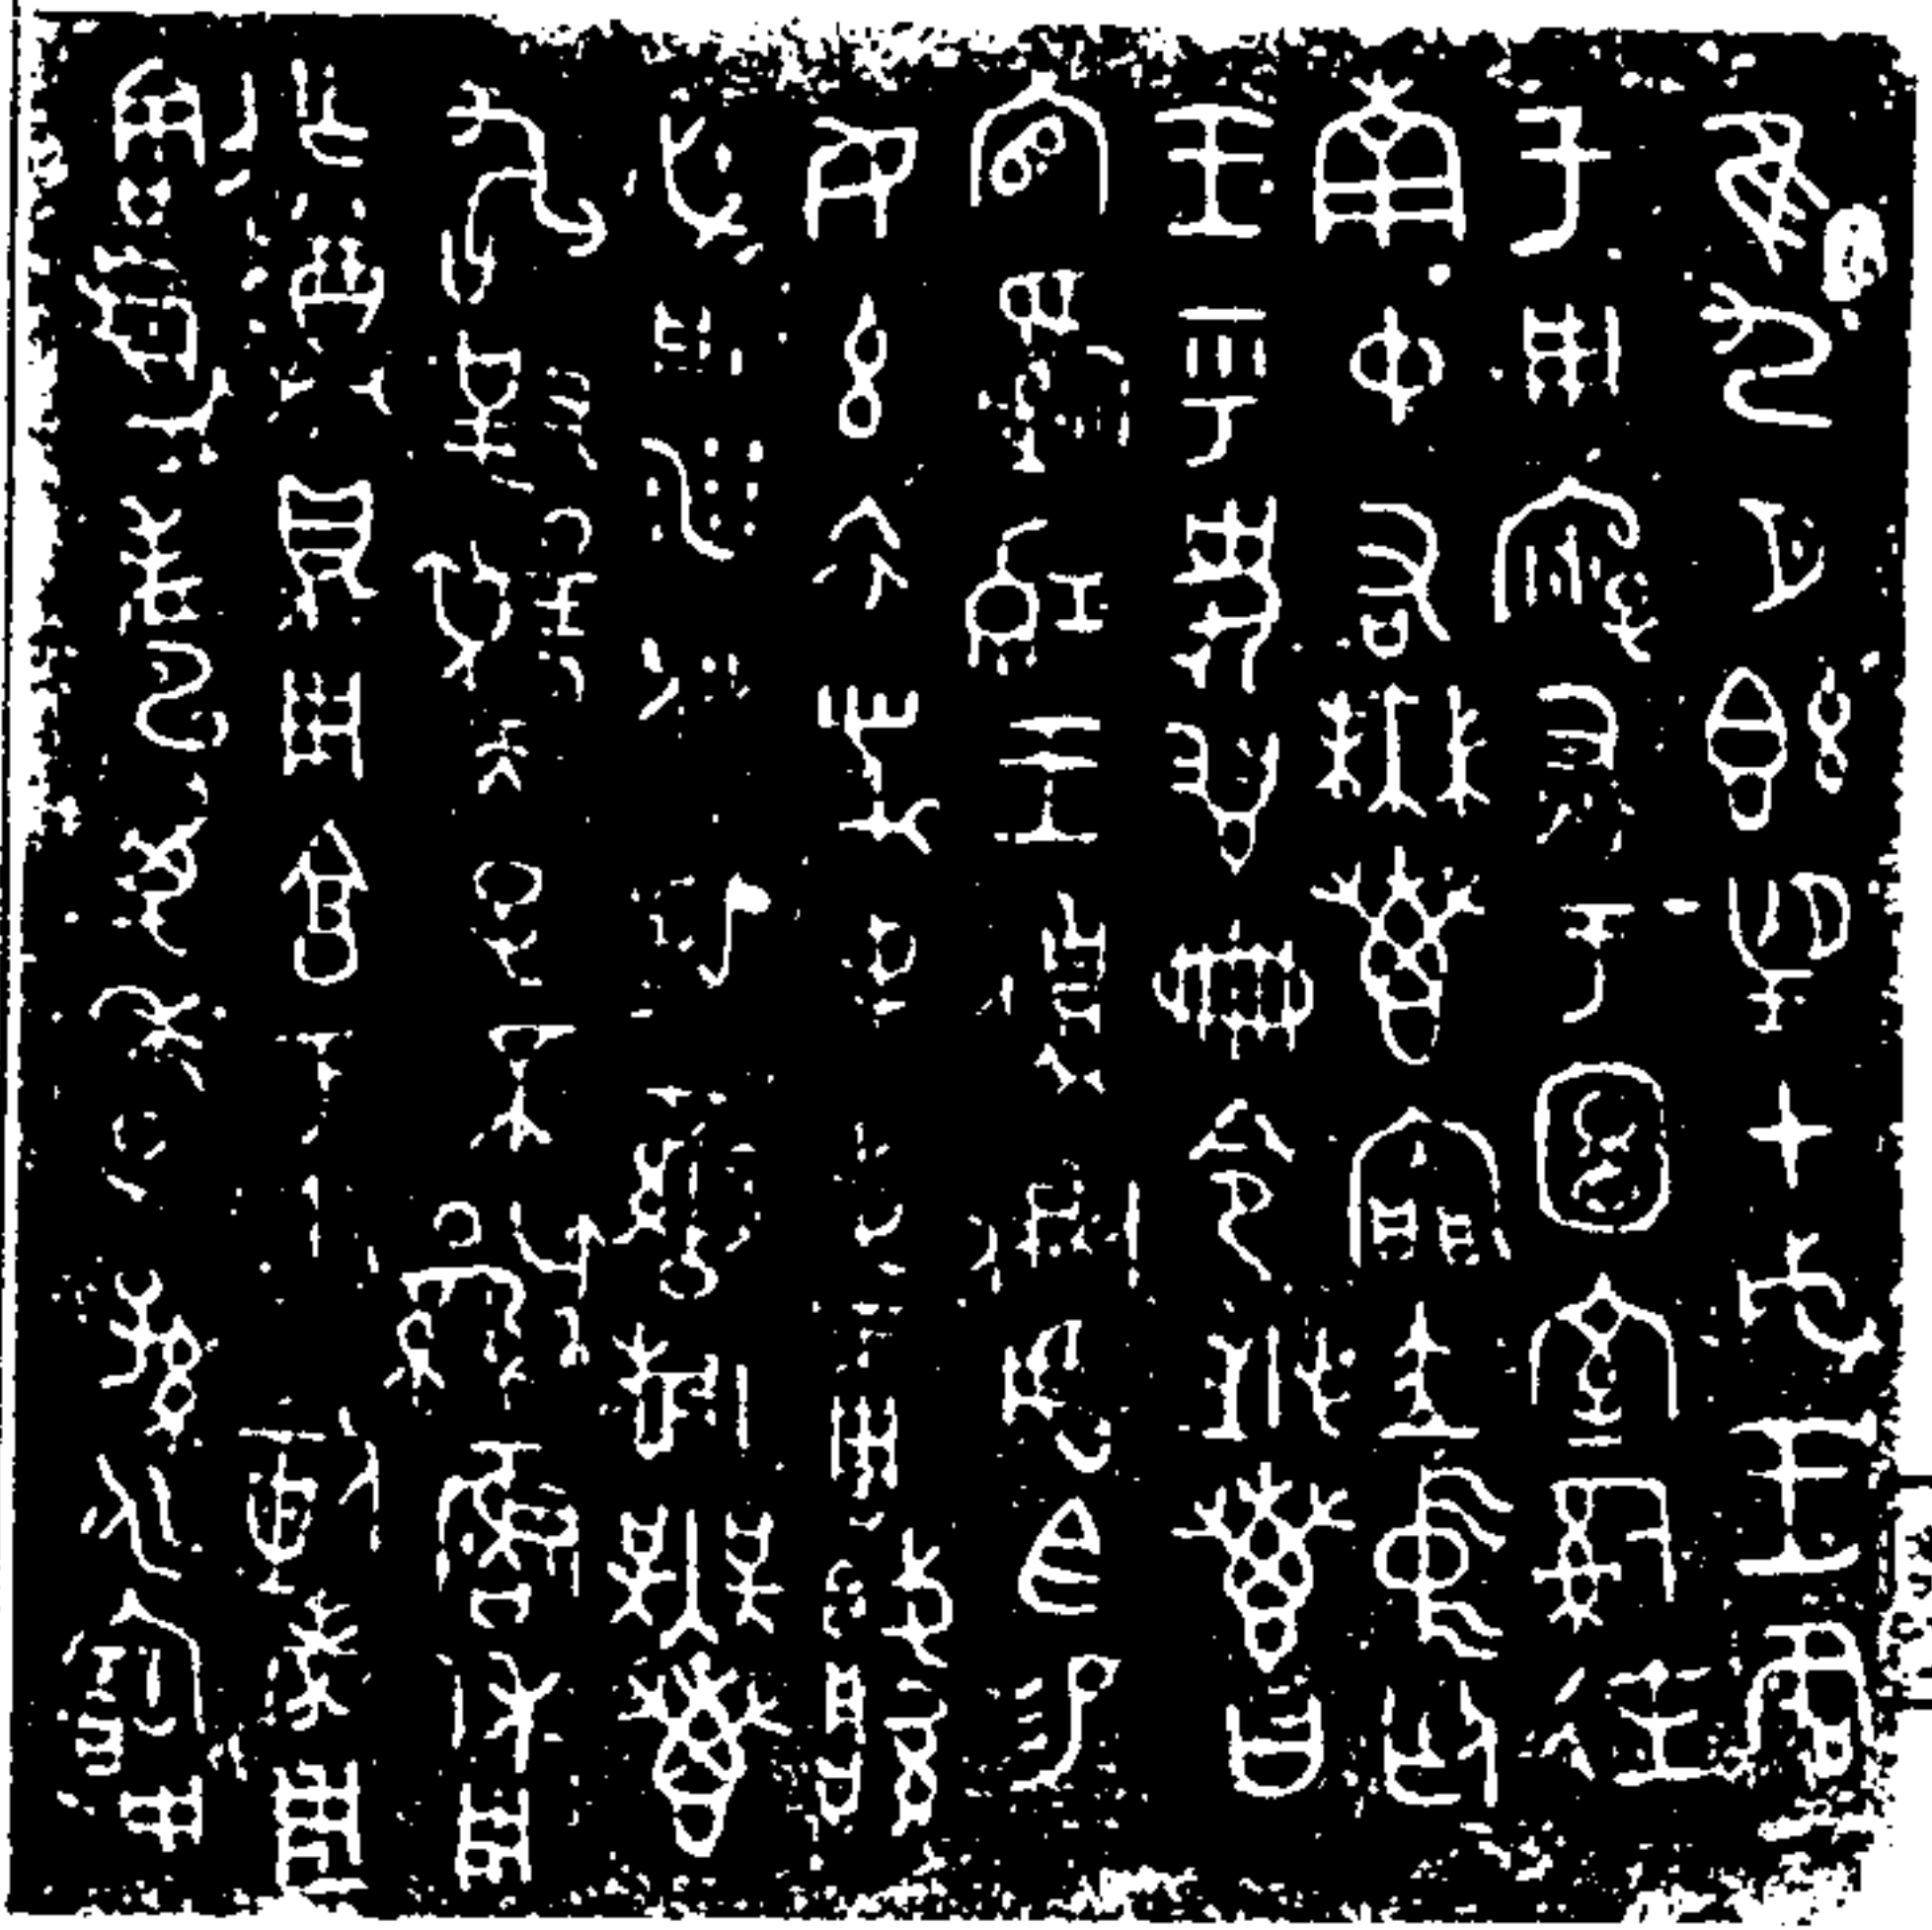 隹九月既望甲戌王各
于周廟述于圖室司徒
南中右無叀內門立中廷
王乎史翏冊令無叀曰官
司穆王側虎臣易女
玄衣黹屯戈琱必彤
沙攸勒鑾旂無叀敢對
揚天子不顯魯休用乍
尊鼎用享于朕剌考用
割眉壽萬年子孫永寶用